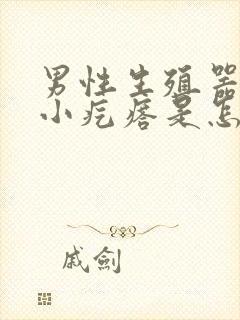 男性生殖器
小疙瘩是怎
戚劍